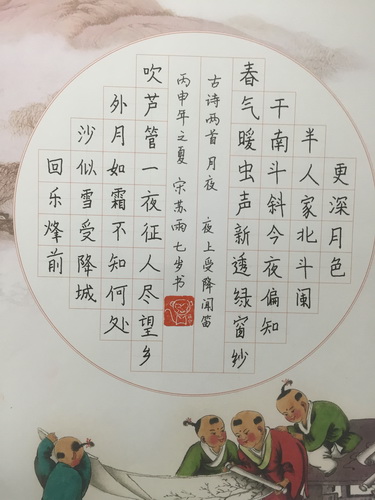 更深月色
半人家北斗阑
干南斗斜今夜偏知
春气暖虫声新透绿窗纱
古诗两首 月夜 夜上受降闻笛
丙申年之夏 宋苏雨七岁书
吹芦管一夜征人尽望乡
外月如霜不知何处
沙似雪受降城
回乐烽前